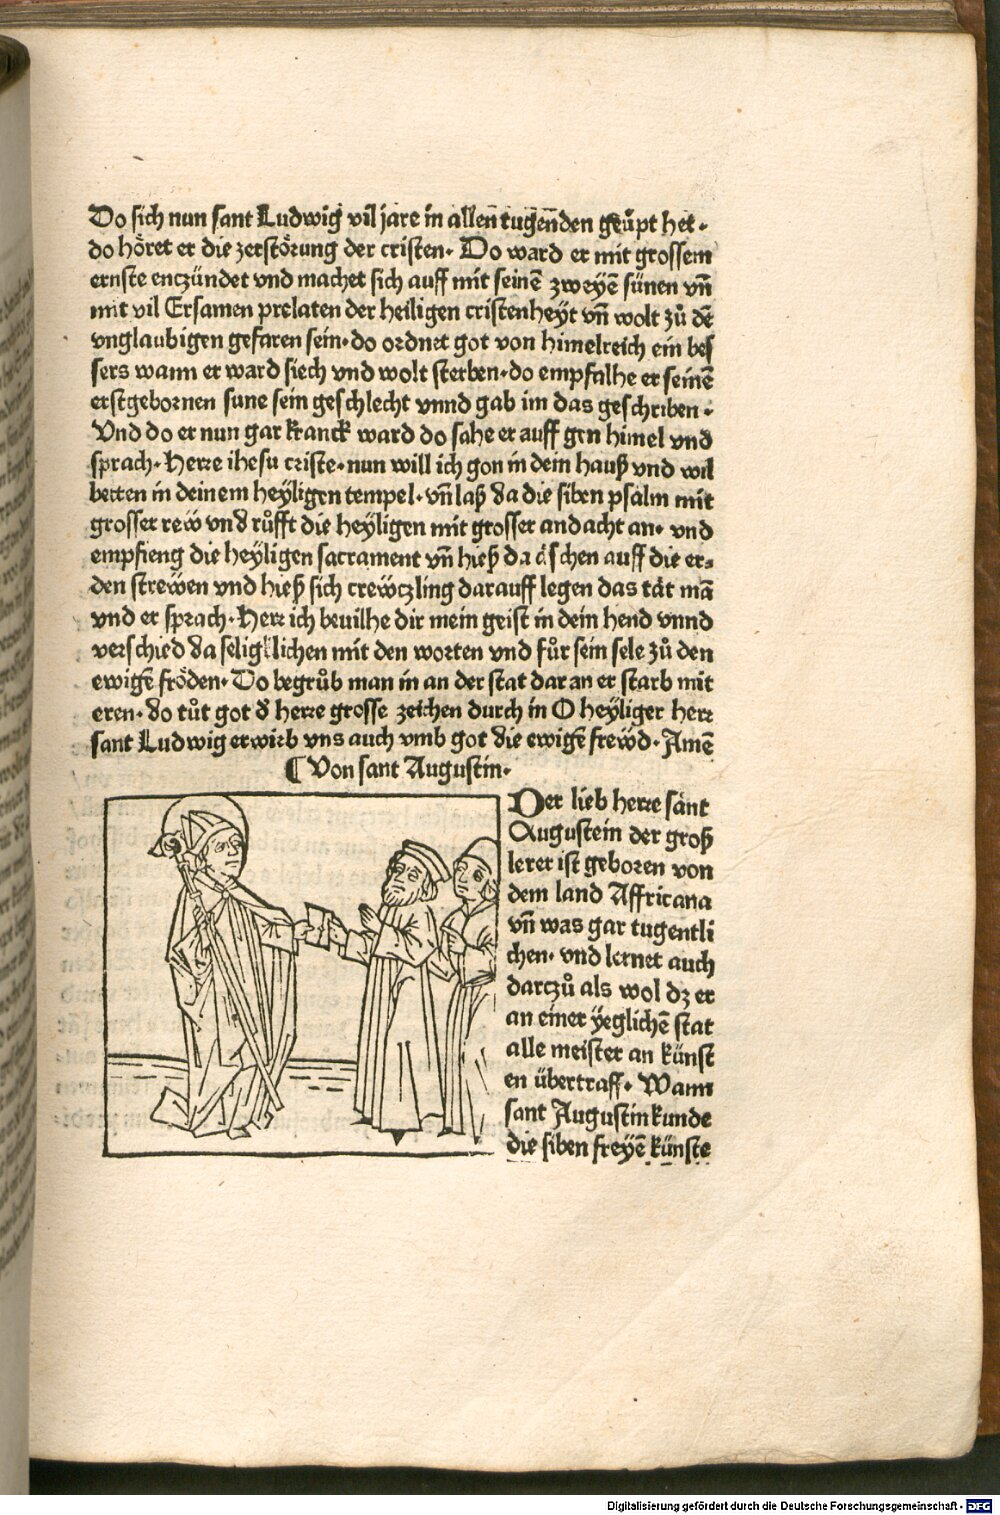 Do sich nun sant Ludwig vil jare in allen tugenden geu̇pt het·
do hoͤret er die zerstoͤrung der cristen· Do ward er mit grossem
ernste enczündet vnd machet sich auff mit seinē zweyē sünen vn̄
mit vil Ersamen prelaten der heiligen cristenheyt vn̄ wolt zuͦ dē
vnglaubigen gefaren sein·do ordnet got von himelreich ein bes
sers wann er ward siech vnd wolt sterben·do empfalhe er seinē
erstgebornen sune sein geschlecht vnnd gab im das geschriben·
Vnd do er nun gar kranck ward do sahe er auff gen himel vnd
sprach·Herre ihesu criste·nun will ich gon in dein hauß vnd wil
betten in deinem heÿligen tempel·vn̄ laß da die siben psalm mit
grosser rew vnd ruͦfft die heÿligen mit grosser andacht an· vnd
empfieng die heÿligen sacrament vn̄ hieß da aͤschen auff die er⸗
den strewen vnd hieß sich crewczling darauff legen das taͤt mā
vnd er sprach·Herr ich beuilhe dir mein geist in dein hend vnnd
verschied da seligklichen mit den worten vnd fuͦr sein sele zuͦ den
ewigē froͤden·Do begruͦb man in an der stat dar an er starb mit
eren·do tuͦt got d̕ herre grosse zeichen durch in O heÿliger herr
sant Ludwig erwirb vns auch vmb got die ewigē frewd·Amē
¶ Von sant Augustin·
Der lieb herre sant
Augustein der groß
lerer ist geboren von
dem land Affricana
vn̄ was gar tugentli
chen· vnd lernet auch
darczuͦ als wol dz er
an einer ÿeglichē stat
alle meister an künst
en übertraff· Wann
sant Augustin kunde
die siben freyē künste
Digitalisierung gefördert durch die Deutsche Forschungsgemeinschaft - DFG